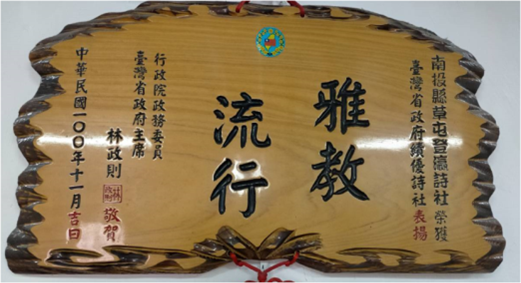 南投縣草屯登瀛詩社 榮獲
臺灣省政府績優詩社 表揚
雅教
流行
行政院政務委員
臺灣省政府主席
林政則 敬賀
中華民國一〇〇年十一月吉日